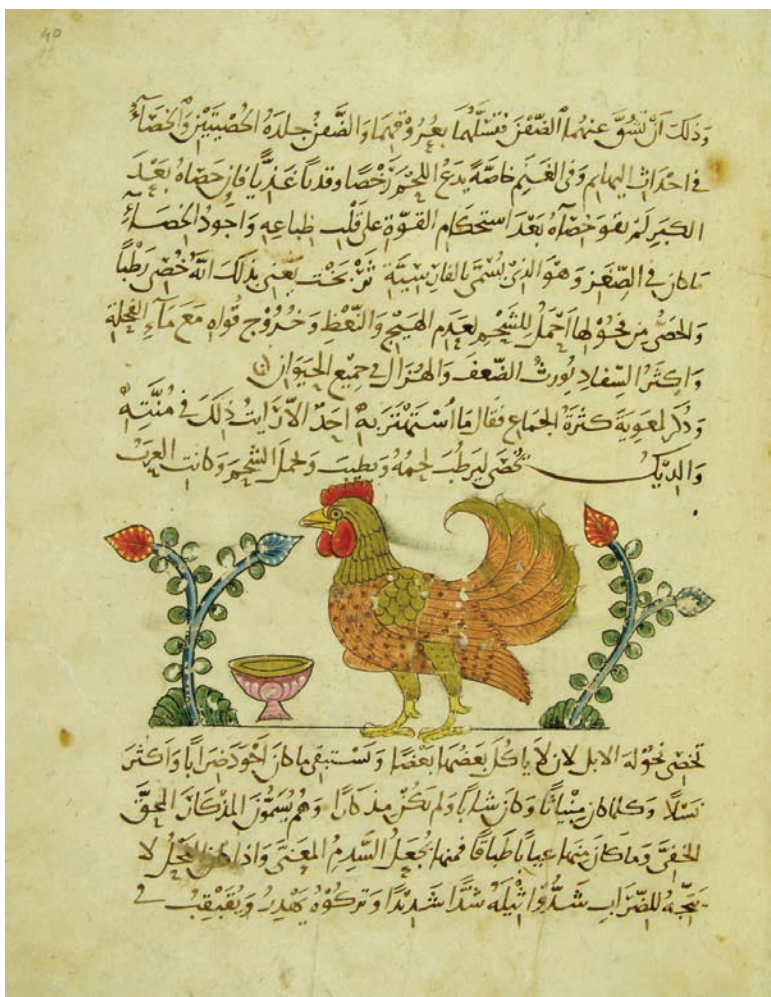 40
وذلك أن تشق عنهما الصفن فتسلهما بعروقهما والصفن جلدة الخصيتين والخصاء
في احداث البهايم وفي الغنم خاصة يدع اللحم رخصا وقديا غذيا فان خصاه بعد
الكبر لم يقو خصاه بعد استحكام القوة على قلب طباعه واجود الخصاء
ما كان في الصغر وهو الذي يسمى بالفارسية تربخت يعني بذلك انه خصى رطبا
والخصى من فحولها احمل للشحم لعدم الهيج والنعظ وخروج قواه مع ماء الفحلة
واكثر السفاد يورث الضعف والهزال في جميع الحيوان
وذكر لمعوية كثرة الجماع فقال ما استهتر به احد الا رايت ذلك في منته
والديك يخصى ليرطب لحمه ويطيب ويحمل الشحم وكانت العرب
تخصى فحولة الابل لان لا ياكل بعضها بعضا وتستبقى ما كان اجود ضرابا واكثر
نسلا وكلما كان مينياثا وكان شابا ولم يكن مذكارا وهم يسمون المذكار المحق
الخفي وما كان منها عياياء طباقا فمنها يجعل السدم المعنى واذا كان الفحل لا
يتجه للضراب شدوا ثيله شدا شديدا وتركوه يهدر ويقبقب في